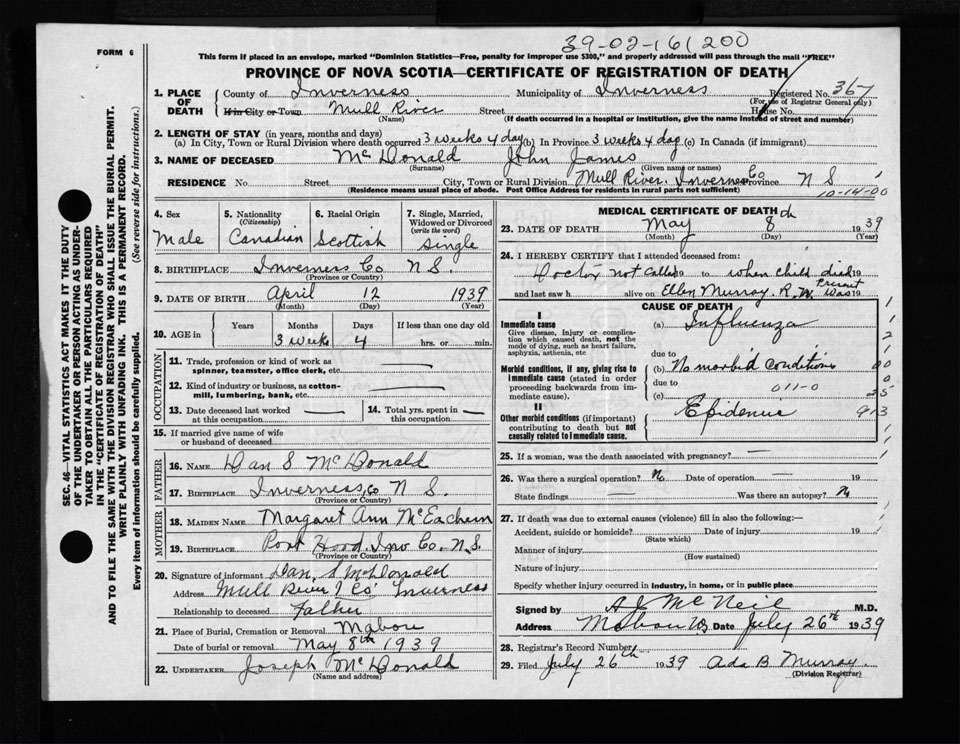 39-02-161200
FORM 6
This form if placed in an envelope, marked "Dominion Statistics—Free, penalty for improper use $300," and properly addressed will pass through the mail "FREE"
PROVINCE OF NOVA SCOTIA—CERTIFICATE OF REGISTRATION OF DEATH
1. PLACE OF DEATH County of Inverness Municipality of Inverness Registered No. 367
(For use of Registrar General only)
If in City or Town Mull River Street House No.
(Name) (If death occurred in a hospital or institution, give the name instead of street and number)
2. LENGTH OF STAY (in years, months and days)
(a) In City, Town or Rural Division where death occurred 3 weeks 4 day (b) In Province 3 weeks 4 day (c) In Canada (if immigrant)
3. NAME OF DECEASED McDonald John James
(Surname) (Given name or names)
RESIDENCE No. Street City, Town or Rural Division Mull River. Inverness Co Province N S
(Residence means usual place of abode. Post Office Address for residents in rural parts not sufficient) 10-14-00
4. Sex Male
5. Nationality (Citizenship) Canadian
6. Racial Origin Scottish
7. Single, Married, Widowed or Divorced (write the word) Single
8. BIRTHPLACE Inverness Co N S.
(Province or Country)
9. DATE OF BIRTH April 12 1939
(Month) (Day) (Year)
10. AGE in Years Months Days If less than one day old
3 weeks 4 hrs. or min.
OCCUPATION
11. Trade, profession or kind of work as spinner, teamster, office clerk, etc. —
12. Kind of industry or business, as cotton-mill, lumbering, bank, etc. —
13. Date deceased last worked at this occupation —
14. Total yrs. spent in this occupation —
15. If married give name of wife or husband of deceased
FATHER
16. NAME Dan S McDonald
17. BIRTHPLACE Inverness Co N S.
(Province or Country)
MOTHER
18. MAIDEN NAME Margaret Ann McEachern
19. BIRTHPLACE Port Hood Inv Co. N.S.
(Province or Country)
20. Signature of informant Dan. S McDonald
Address Mull River, Co Inverness
Relationship to deceased Father
21. Place of Burial, Cremation or Removal Mabou
Date of burial or removal May 8th 1939
22. UNDERTAKER Joseph McDonald
(Name and address)
MEDICAL CERTIFICATE OF DEATH
23. DATE OF DEATH May 8th 1939
(Month) (Day) (Year)
24. I HEREBY CERTIFY that I attended deceased from:
Doctor not called 19 to when child died 19
and last saw h alive on Ellen Murray R.N. was Present 19
CAUSE OF DEATH
I
Immediate cause
Give disease, injury or complication which caused death, not the mode of dying, such as heart failure, asphyxia, asthenia, etc
(a) Influenza
due to
Morbid conditions, if any, giving rise to immediate cause (stated in order proceeding backwards from immediate cause).
(b) No morbid conditions
due to 011-0
(c)
II
Other morbid conditions (if important) contributing to death but not causally related to immediate cause.
25. If a woman, was the death associated with pregnancy? —
26. Was there a surgical operation? No Date of operation — 19
State findings — Was there an autopsy? No
27. If death was due to external causes (violence) fill in also the following:—
Accident, suicide or homicide? Date of injury 19
(State which)
Manner of injury
(How sustained)
Nature of injury
Specify whether injury occurred in industry, in home, or in public place
Signed by A J McNeil M.D.
Address Mabou NS Date July 26th 1939
28. Registrar's Record Number
29. Filed July 26th 1939 Ada B Murray.
(Division Registrar)
SEC. 46—VITAL STATISTICS ACT MAKES IT THE DUTY
OF THE UNDERTAKER OR PERSON ACTING AS UNDER-
TAKER TO OBTAIN ALL THE PARTICULARS REQUIRED
IN THE "CERTIFICATE OF REGISTRATION OF DEATH"
AND TO FILE THE SAME WITH THE DIVISION REGISTRAR WHO SHALL ISSUE THE BURIAL PERMIT.
WRITE PLAINLY WITH UNFADING INK. THIS IS A PERMANENT RECORD.
Every item of information should be carefully supplied. (See reverse side for instructions.)